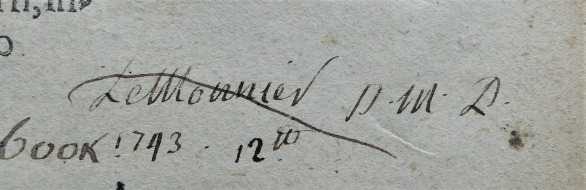 LeMonnier D. M. D.
book 1793. 12th